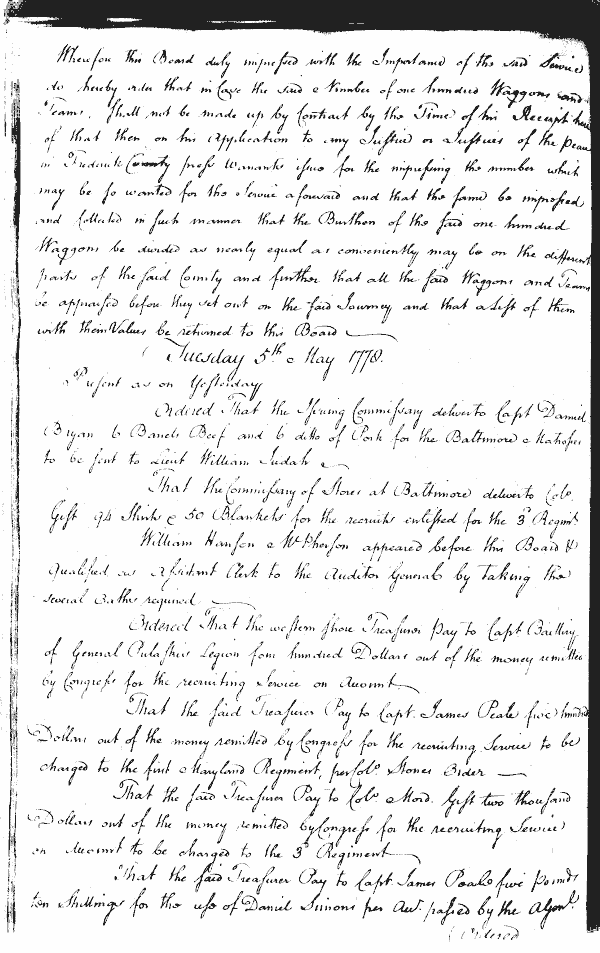 Wherefore this Board duly impressed with the Importance of the said Service
do hereby order that in Case the said Number of one hundred Waggons and
Teams, shall not be made up by Contract by the Time of his Receipt here
of that then on his Application to any Justice or Justices of the peace
in Frederick County press Warrants issue for the impressing the number which
may be so wanted for the Service aforesaid and that the same be impressed
and Collected in such manner that the Burthen of the said one hundred
Waggons be divided as nearly equal as conveniently may be on the different
parts of the said County and further that all the said Waggons and Teams
be appraised before they set out on the said Journey and that a List of them
with their Values be returned to this Board
Tuesday 5th May 1778.
Present as on Yesterday
Ordered That the Issuing Commissary deliver to Capt Daniel
Bryan 6 Barrels Beef and 6 ditto of Pork for the Baltimore Matrosses
to be sent to Lieut William Judah
That the Commissary of Stores at Baltimore deliver to Colo.
Gist 94 Shirts & 50 Blankets for the recruits enlisted for the 3d Regimt.
William Hanson McPherson appeared before this Board &
qualified as Assistant Clerk to the Auditor General by taking the
several Oaths required
Ordered That the western shore Treasurer Pay to Capt
of General Pulaskis Legion four hundred Dollars out of the money remitted
by Congress for the recruiting Service on Account
That the said Treasurer Pay to Capt. James Peale five hundred
Dollars out of the money remitted by Congress for the recruiting Service to be
charged to the first Maryland Regiment, per Colo. Stones Order
That the said Treasurer Pay to Colo. Mord. Gist two thousand
Dollars out of the money remitted by Congress for the recruiting Service
on Account to be charged to the 3d Regiment
That the said Treasurer Pay to Capt James Peale five pounds
ten Shillings for the use of Daniel Simons per Acct. passed by the
Ordered